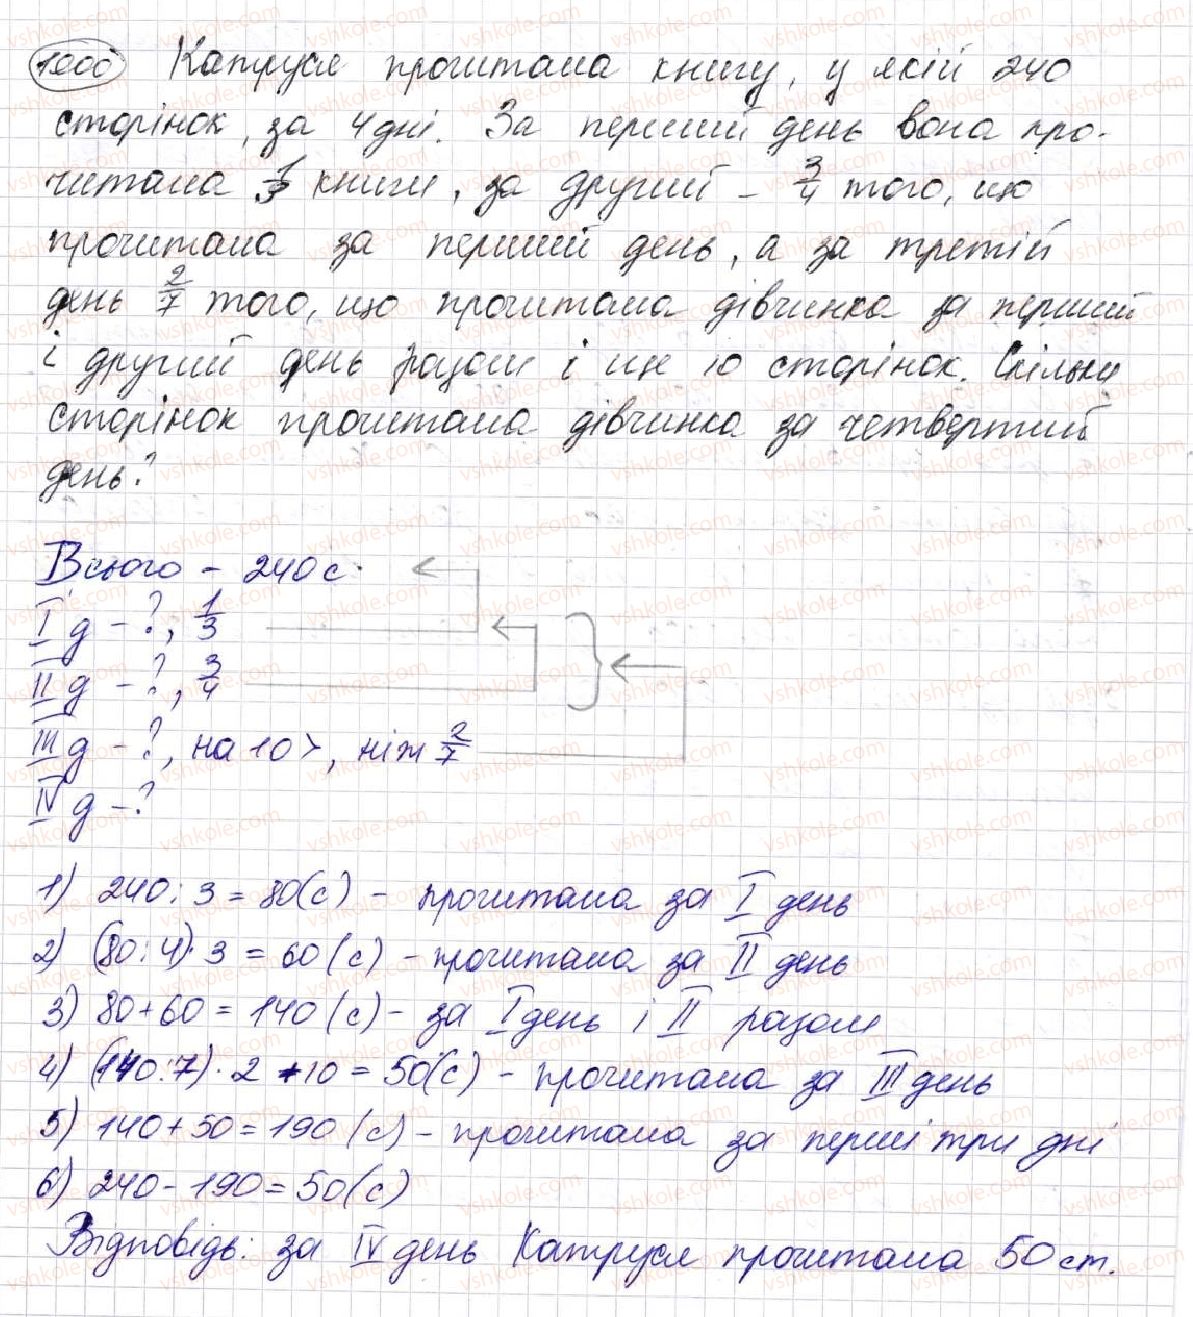 1000 Катруся прочитала книгу, у якій 240
сторінок, за 4 дні. За перший день вона про-
читала 1/3 книги, за другий – 3/4 того, що
прочитала за перший день, а за третій
день 2/7 того, що прочитала дівчинка за перший
і другий день разом і ще 10 сторінок. Скільки
сторінок прочитала дівчинка за четвертий
день?
Всього – 240 с.
I д – ?, 1/3
II д – ?, 3/4
III д – ?, на 10 >, ніж 2/7
IV д – ?
1) 240 : 3 = 80(с) – прочитала за I день
2) (80 : 4) · 3 = 60 (с) – прочитала за II день
3) 80 + 60 = 140 (с) – за I день і II разом
4) (140 : 7) · 2 + 10 = 50(с) – прочитала за III день
5) 140 + 50 = 190 (с) – прочитала за перші три дні
6) 240 – 190 = 50(с)
Відповідь: за IV день Катруся прочитала 50 ст.
vshkole.com